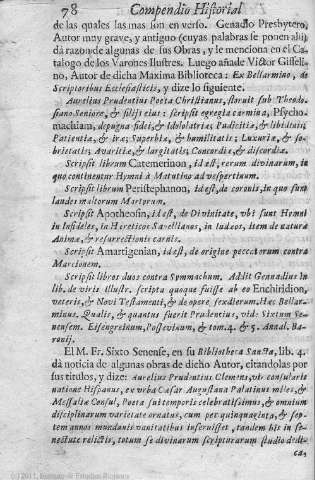 78 Compendio Historial
de las quales las mas son en verso. Genadio Presbytero,
Autor muy grave, y antiguo (cuyas palabras se ponen alli)
dà razon de algunas de sus Obras, y le menciona en el Ca-
talogo de los Varones Ilustres. Luego añade Victor Gisseli-
no, Autor de dicha Maxima Biblioteca: Ex Bellarmino, de
Scriptoribus Ecclesiasticis, y dize lo siguiente.
Aurelius Prudentius Poeta Christianus, floruit sub Theodo-
siano Seniore, & filijs eius: scripsit egregia carmina, Psycho-
machiam, depugna fidei, & Idololatriæ, Pudicitiæ, & libidinis,
Patientiæ, & iræ; Superbiæ, & humilitatis: Luxuriæ, & so-
brietatis; Avaritiæ, & largitatis; Concordiæ, & discordiæ.
Scripsit librum Catemerinon, id est, rerum divinarum, in
quo continentur Hymni à Matutino ad vespertinum.
Scripsit librum Peristephanon, id est, de coronis, in quo sunt
laudes multorum Martyrum.
Scripsit Apotheosin, id est, de Divinitate, vbi sunt Hymni
in Infideles, in Hereticos Savellianos, in Iudeos, item de natura
Animæ, & resurrectionis carnis.
Scripsit Amartigenian, id est, de origine peccatorum contra
Marcionem.
Scripsit libros duos contra Symmachum. Addit Gennadius in
lib. de viris illustr. scripta quoque fuisse ab eo Enchiridion,
veteris, & Novi Testamenti, & de opere sex dierum. Hæc Bellar-
minus. Qualis, & quantus fuerit Prudentius, vid. Sixtum Se-
nensem. Eisengreinum, Possevinum, & tom. 4. & 5. Annal. Ba-
ronij.
El M. Fr. Sixto Senense, en su Bibliotheca Sancta, lib. 4.
dà noticia de algunas obras de dicho Autor, citandolas por
sus titulos, y dize: Aurelius Prudentius Clemens, vir consularis
natione Hispanus, ex veba Cæsar Augustana Palatinus miles, &
Messaliæ Consul, Poeta sui temporis celebratissimus, & omnium
disciplinarum varietate ornatus, cum per quinquaginta, & sep-
tem annos mundanis vanitatibus inservisset, tandem bis in se-
nectute relictis, totum se divinarum scripturarum studio dedi-
ca-